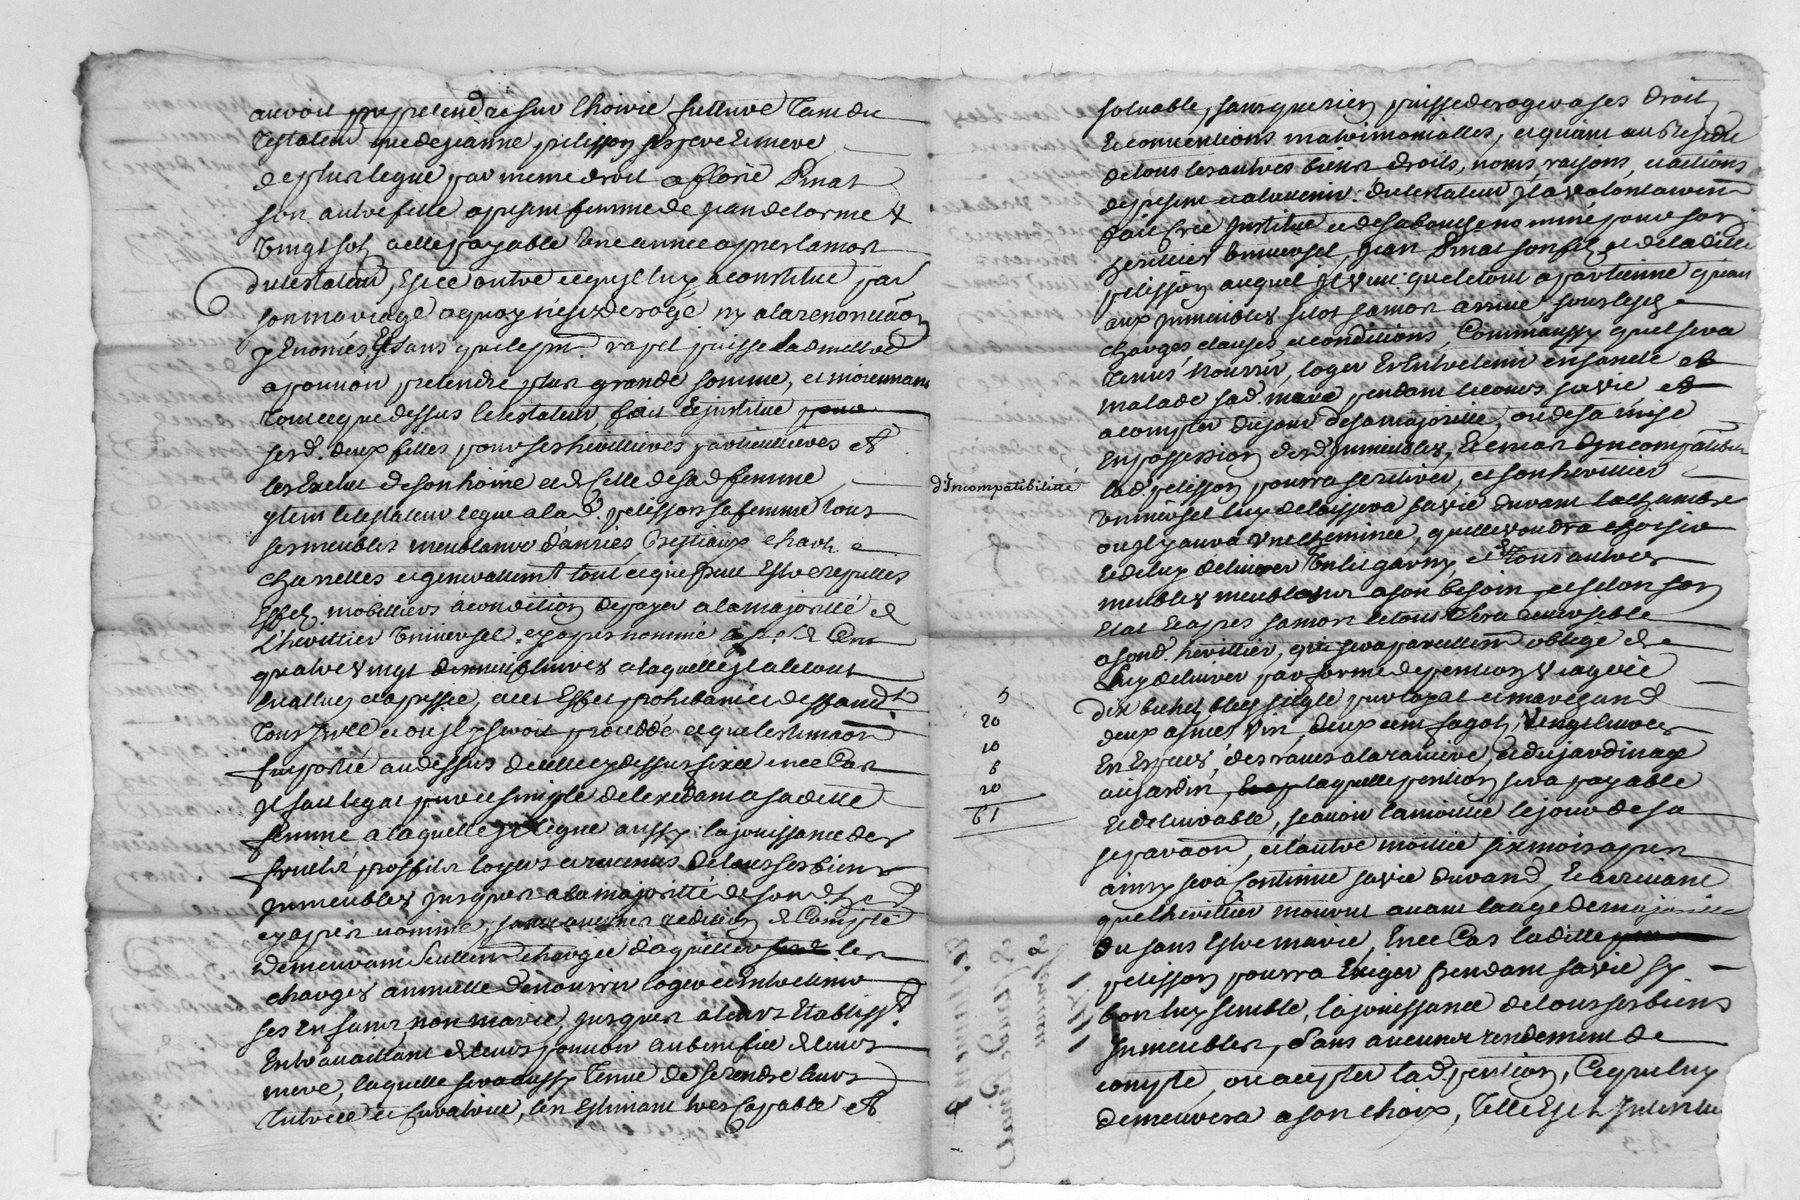 auroit pu pretendre sur lhoirie future tant du
testateur que de jeanne pelisson ses pere et mere
de plus legue par meme droit a florie Pinat
son autre fille a present femme de jean delorme &
vingt sols a elle payable une annee apres la mort
du testateur, et ce outre ce qu'il luy a constitué par
son mariage a quoy n'est derogé ny a la renonciaon
y enoncée et sans que le pnt. rapel puisse la demettre
a pouvoir pretendre plus grande somme, et moiennant
tout ce que dessus le testateur, fait et institue
ses d. deux filles pour ses heritieres particulieres et
les exclut de son hoirie et de celle de sad femme
ytem le testateur legue a la d. pelisson sa femme tous
ses meubles meublants danrées bestiaux chars
charettes et generallement tout ce que peut estre reputtes
effets mobilliers a condition de payer a la majorité de
l'herittier universel cy apres nommé de Cent
quatre vingt livres a laquelle il a le tout
evalluez et apressié, avec effet prohibant et deffandt
tous inve et ou il y seroit proceddé et que lestimaon
fut portée au dessus de celle cy dessus fixée en ce Cas
il fait legat pur et simple de lexedant a sa ditte
femme a laquelle il legue aussy la jouissance des
fruits proffits loyers et revenus de tous ses biens
jmmeubles jusques a la majoritté de son d. her
cy apres nommé, sans aucune redition de Compte
demeurant seullemt chargée d'aquitter les
charges annuelle de nourrir loger et entretenir
ses enfants non marié, jusques a leurs etablisst
en travaillant de leurs pouvoir au benefice de leurs
mere, laquelle sera aussy tenue de se rendre leurs
tutrice et curatrice, len estimant tres capable et
d'incompatibilité
5
20
10
6
20
61
solvable, sans que rien puisse deroger a ses droits
et conventions matrimonialles, et quant au residu
de tous les autres biens droits, noms, raisons, et actions
de present et a l'avenir du testateur il a volontairemt
fait créé institué et de sa bouche nommé pour son
heritier universel, jean Pinat son fils et de la ditte
pelisson auquel il veut que le tout apartienne quant
aux jmmeubles sitot sa mort arrivé sous les
charges clauses et conditions, Comm'aussy quel sera
tenus nourrir, loger et entretenir en santé et
malade sad. mere pendant le cours sa vie et
a compter du jour de sa majoritte, ou de sa mise
en possession des d. jmmeubles, et en cas d'jncompatibilité
la d. pelisson pourra se retirer, et son herittier
universel luy delaissera sa vie durant la chambre
ou il y aura une cheminée, qu'elle voudra choisir
et de luy delivrer un lit garny et tous autres
meubles meublans a son besoin et selon son
etat et apres sa mort le tout sera reversible
a son d. herittier, qui sera pareillemt obligé de
luy delivrer par forme de pention viagere
dix bichet bled seigle pur loyal et marchand
deux asnées vin, deux cent fagots, vingt livres
en especes, des raves a la raviere, et du jardinage
au jardin, laquelle pention sera payable
et delivrable, scavoir la moitié le jour de sa
separaon, et l'autre moitié six mois apres
ainsy sera continué sa vie durand, et arrivant
que lherittier mourut avant laage de majoritte
ou sans estre marié, en ce Cas laditte
pelisson pourra exiger pendant sa vie sy
bon luy semble, la jouissance de tous ses biens
jmmeubles, sans aucune rendement de
compte, ou accepter la d. pention, Ce que luy
demeurera a son choix, telle est l'intentio